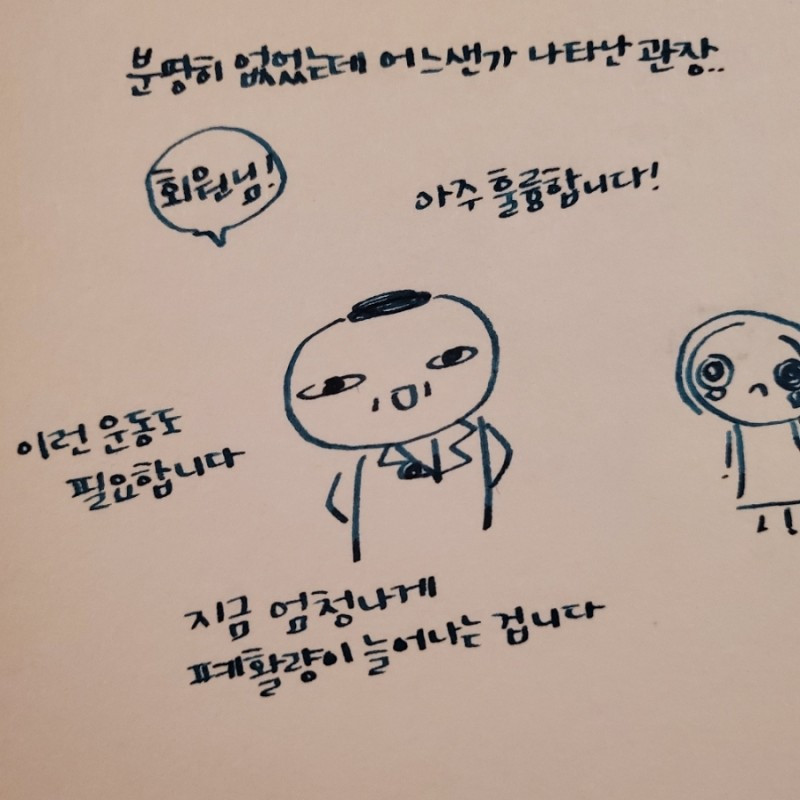 분땅히 없었는데 어느샌가 나타난 관장..
회원님!
아주 훌륭합니다!
이런 운동도
필요합니다
지금 엄청나게
폐활량이 늘어나는 겁니다